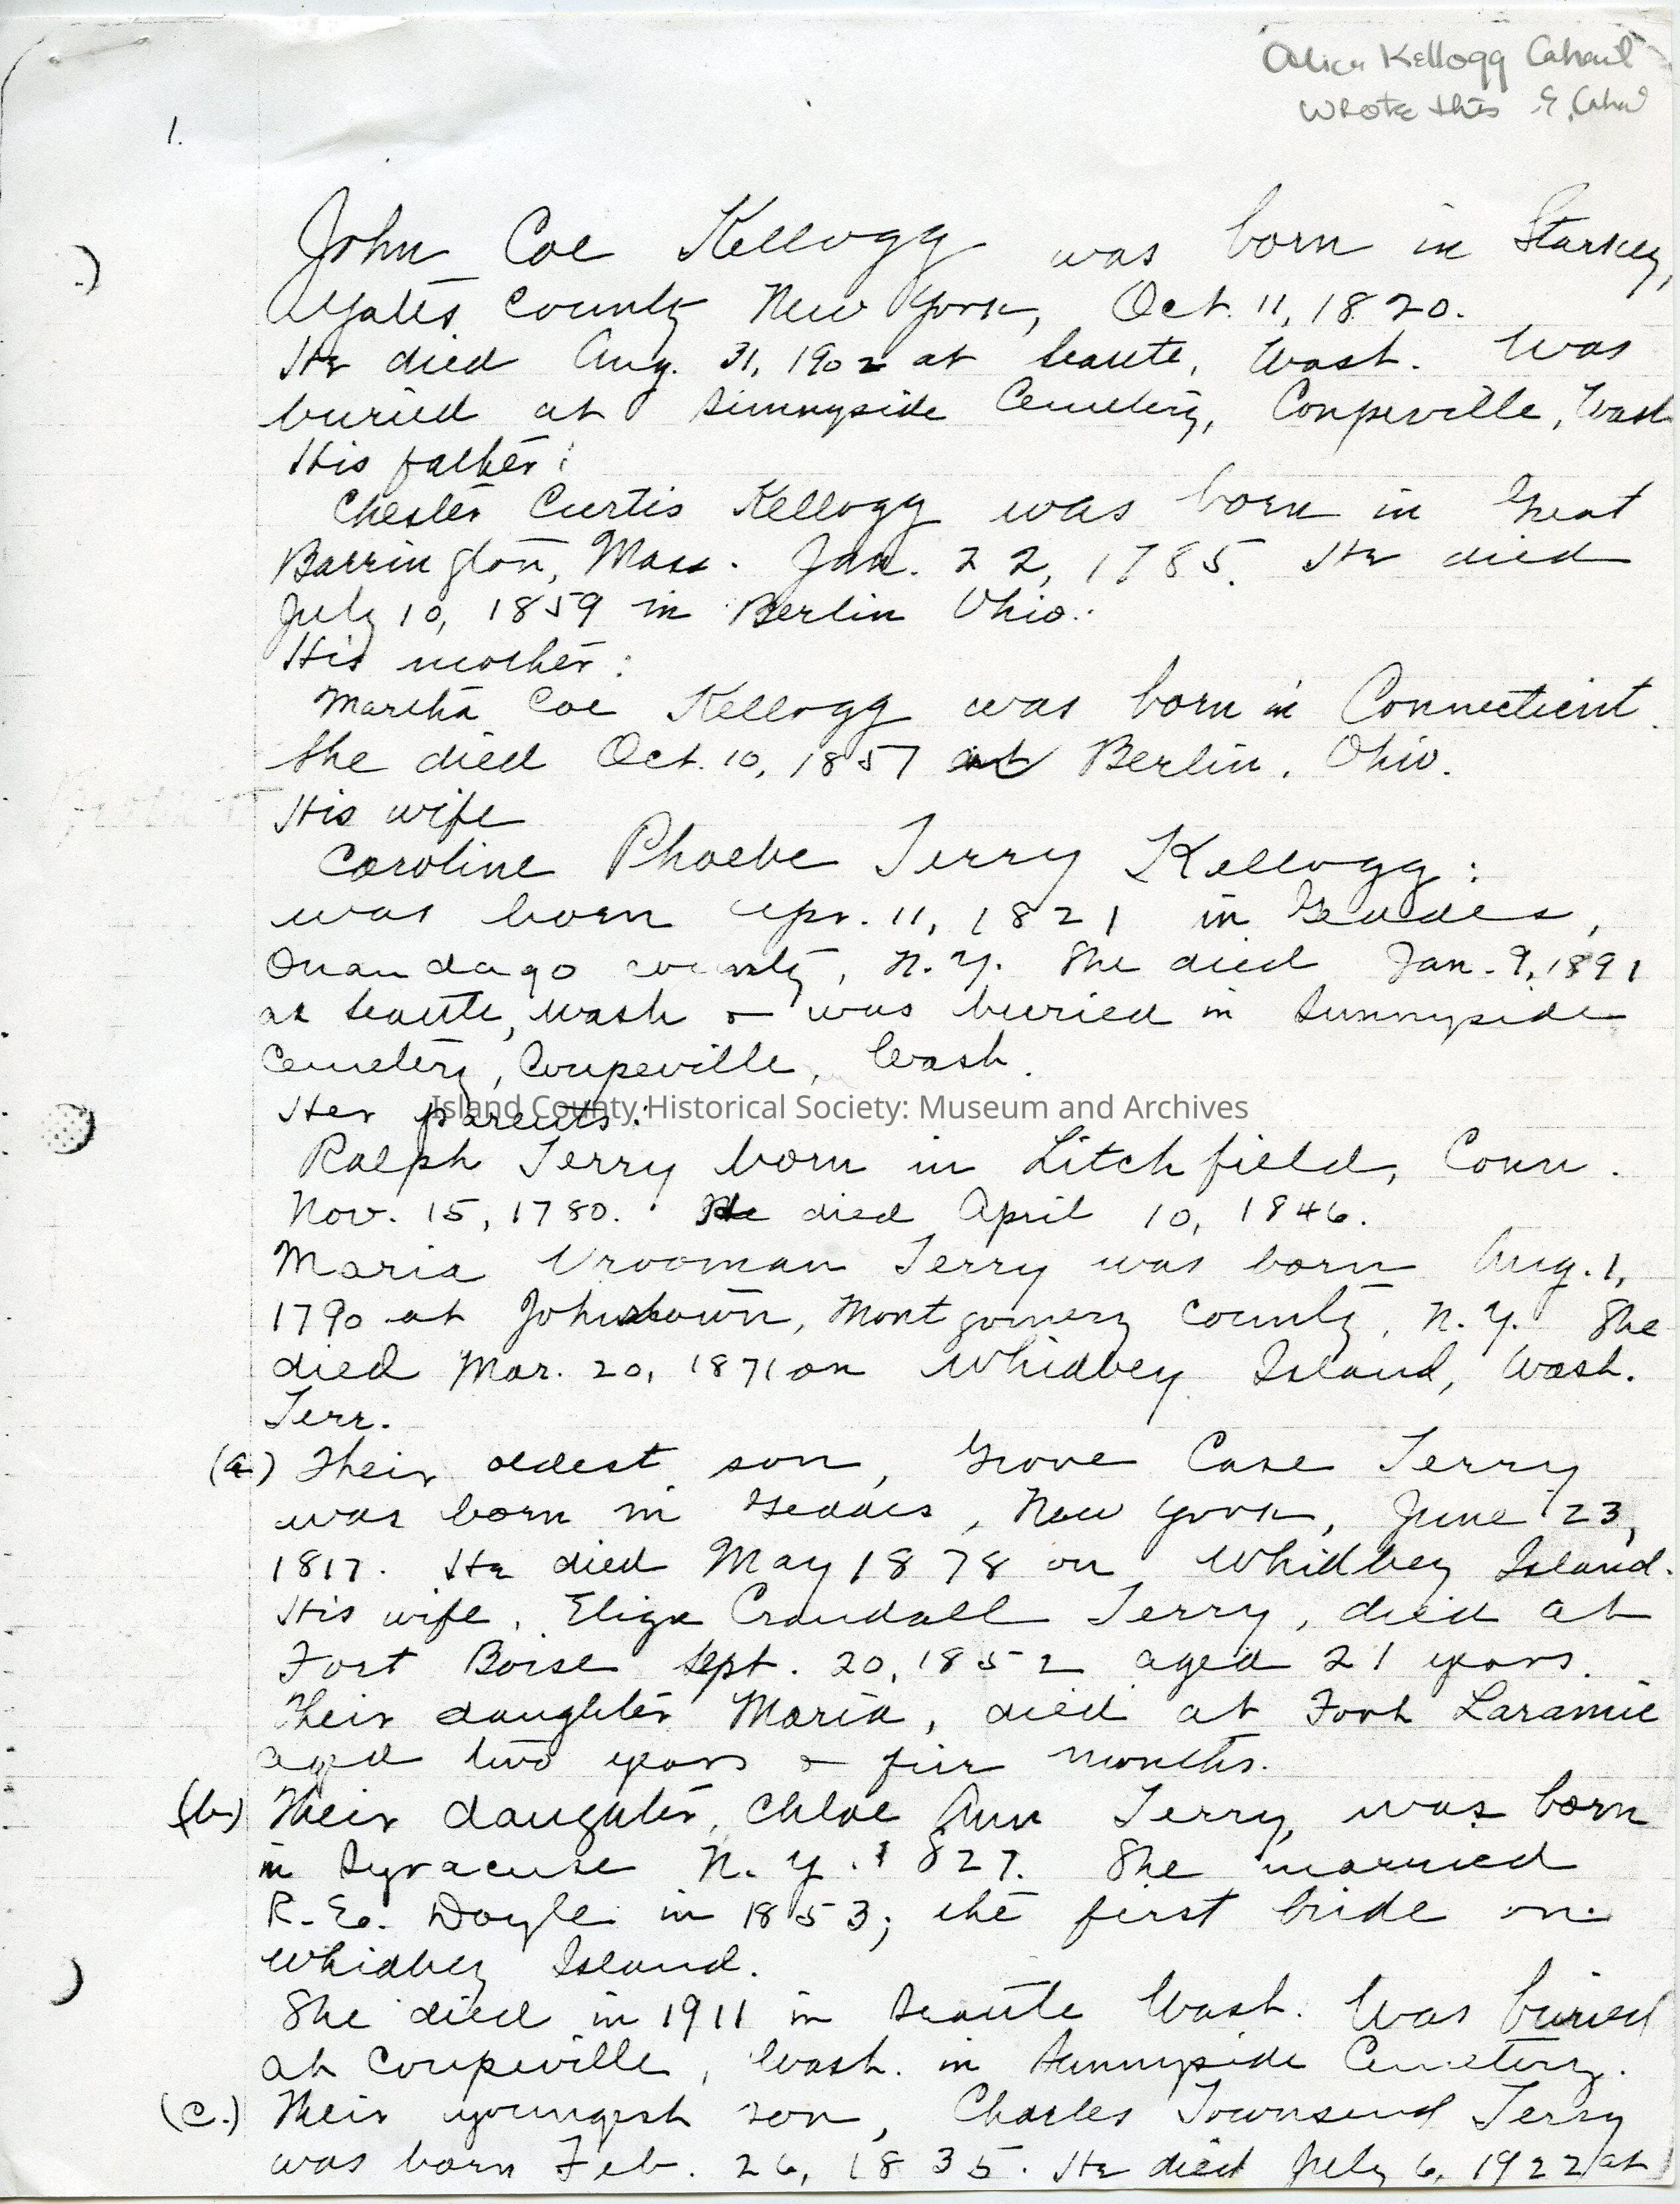 Alice Kellogg Cahail
Wrote this
1.
John Coe Kellogg was born in Starkey,
Yates County New York, Oct. 11, 1820.
He died Aug. 31, 1902 at Seattle, Wash. Was
buried at Sunnyside Cemetery, Coupeville, Wash
His father:
Chester Curtis Kellogg was born in Great
Barrington, Mass. Jan. 22, 1785. He died
July 10, 1859 in Berlin Ohio.
His mother:
Martha Coe Kellogg was born in Connecticut.
She died Oct. 10, 1857 at Berlin, Ohio.
His wife
Caroline Phoebe Terry Kellogg:
was born Apr. 11, 1821 in Geddes,
Onandago county, N.Y. She died Jan. 9, 1891
at Seattle, Wash & was buried in Sunnyside
Cemetery, Coupeville, Wash.
Island County Historical Society: Museum and Archives
Her parents:
Ralph Terry born in Litchfield, Conn.
Nov. 15, 1780. He died April 10, 1846.
Maria Vrooman Terry was born Aug. 1,
1790 at Johnstown, Montgomery County, N.Y. She
died Mar. 20, 1871 on Whidbey Island, Wash.
Terr.
(a) Their oldest son, Grove Case Terry
was born in Geddes, New York, June 23,
1817. He died May 1878 on Whidbey Island.
His wife, Eliza Crandall Terry, died at
Fort Boise Sept. 20, 1852 aged 21 years.
Their daughter Maria, died at Fort Laramie
aged two years & five months.
(b.) Their daughter, Chloe Ann Terry, was born
in Syracuse N.Y. 1827. She married
R. E. Doyle in 1853; the first bride on
Whidbey Island.
She died in 1911 in Seattle Wash. Was buried
at Coupeville, Wash. in Sunnyside Cemetery.
(c.) Their youngest son, Charles Townsend Terry
was born Feb. 26, 1835. He died July 6, 1922 at